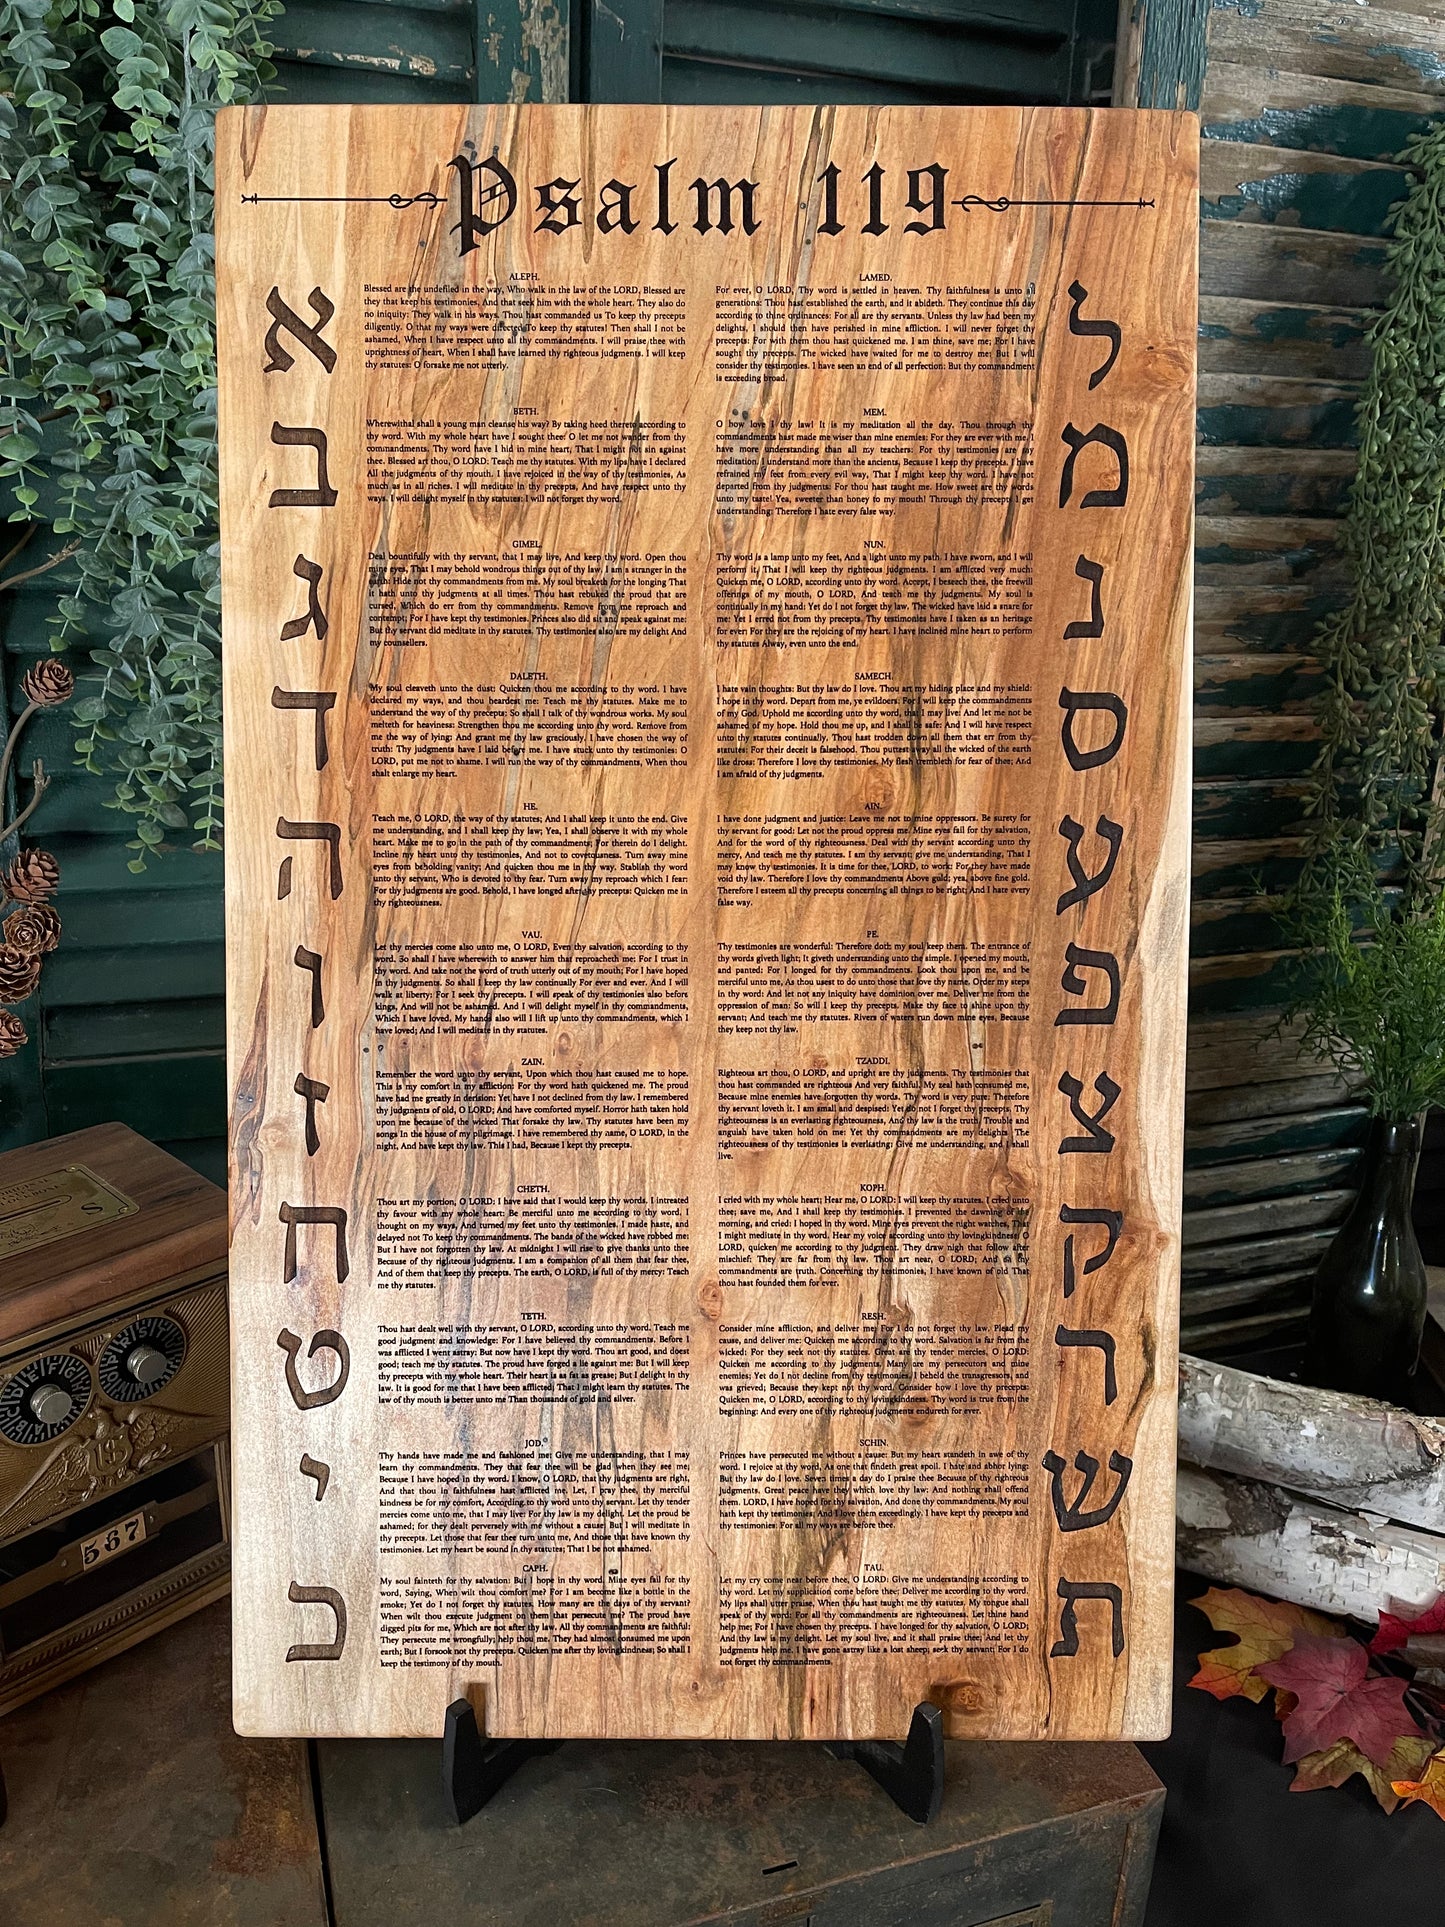 Psalm 119
א
ALEPH.
Blessed are the undefiled in the way, Who walk in the law of the LORD, Blessed are
they that keep his testimonies, And that seek him with the whole heart. They also do
no iniquity: They walk in his ways. Thou hast commanded us To keep thy precepts
diligently. O that my ways were directed To keep thy statutes! Then shall I not be
ashamed, When I have respect unto all thy commandments. I will praise thee with
uprightness of heart, When I shall have learned thy righteous judgments. I will keep
thy statutes: O forsake me not utterly.
ב
BETH.
Wherewithal shall a young man cleanse his way? By taking heed thereto according to
thy word. With my whole heart have I sought thee: O let me not wander from thy
commandments. Thy word have I hid in mine heart, That I might not sin against
thee. Blessed art thou, O LORD: Teach me thy statutes. With my lips have I declared
All the judgments of thy mouth. I have rejoiced in the way of thy testimonies, As
much as in all riches. I will meditate in thy precepts, And have respect unto thy
ways. I will delight myself in thy statutes: I will not forget thy word.
ג
GIMEL.
Deal bountifully with thy servant, that I may live, And keep thy word. Open thou
mine eyes, That I may behold wondrous things out of thy law. I am a stranger in the
earth: Hide not thy commandments from me. My soul breaketh for the longing That
it hath unto thy judgments at all times. Thou hast rebuked the proud that are
cursed, Which do err from thy commandments. Remove from me reproach and
contempt; For I have kept thy testimonies. Princes also did sit and speak against me:
But thy servant did meditate in thy statutes. Thy testimonies also are my delight And
my counsellers.
ד
DALETH.
My soul cleaveth unto the dust: Quicken thou me according to thy word. I have
declared my ways, and thou heardest me: Teach me thy statutes. Make me to
understand the way of thy precepts: So shall I talk of thy wondrous works. My soul
melteth for heaviness: Strengthen thou me according unto thy word. Remove from
me the way of lying: And grant me thy law graciously. I have chosen the way of
truth: Thy judgments have I laid before me. I have stuck unto thy testimonies: O
LORD, put me not to shame. I will run the way of thy commandments, When thou
shalt enlarge my heart.
ה
HE.
Teach me, O LORD, the way of thy statutes; And I shall keep it unto the end. Give
me understanding, and I shall keep thy law; Yea, I shall observe it with my whole
heart. Make me to go in the path of thy commandments; For therein do I delight.
Incline my heart unto thy testimonies, And not to covetousness. Turn away mine
eyes from beholding vanity; And quicken thou me in thy way. Stablish thy word
unto thy servant, Who is devoted to thy fear. Turn away my reproach which I fear:
For thy judgments are good. Behold, I have longed after thy precepts: Quicken me in
thy righteousness.
ו
VAU.
Let thy mercies come also unto me, O LORD, Even thy salvation, according to thy
word. So shall I have wherewith to answer him that reproacheth me: For I trust in
thy word. And take not the word of truth utterly out of my mouth; For I have hoped
in thy judgments. So shall I keep thy law continually For ever and ever. And I will
walk at liberty: For I seek thy precepts. I will speak of thy testimonies also before
kings, And will not be ashamed. And I will delight myself in thy commandments,
Which I have loved. My hands also will I lift up unto thy commandments, which I
have loved; And I will meditate in thy statutes.
ז
ZAIN.
Remember the word unto thy servant, Upon which thou hast caused me to hope.
This is my comfort in my affliction: For thy word hath quickened me. The proud
have had me greatly in derision: Yet have I not declined from thy law. I remembered
thy judgments of old, O LORD; And have comforted myself. Horror hath taken hold
upon me because of the wicked That forsake thy law. Thy statutes have been my
songs In the house of my pilgrimage. I have remembered thy name, O LORD, in the
night, And have kept thy law. This I had, Because I kept thy precepts.
ח
CHETH.
Thou art my portion, O LORD: I have said that I would keep thy words. I intreated
thy favour with my whole heart: Be merciful unto me according to thy word. I
thought on my ways, And turned my feet unto thy testimonies. I made haste, and
delayed not To keep thy commandments. The bands of the wicked have robbed me:
But I have not forgotten thy law. At midnight I will rise to give thanks unto thee
Because of thy righteous judgments. I am a companion of all them that fear thee,
And of them that keep thy precepts. The earth, O LORD, is full of thy mercy: Teach
me thy statutes.
ט
TETH.
Thou hast dealt well with thy servant, O LORD, according unto thy word. Teach me
good judgment and knowledge: For I have believed thy commandments. Before I
was afflicted I went astray: But now have I kept thy word. Thou art good, and doest
good; teach me thy statutes. The proud have forged a lie against me: But I will keep
thy precepts with my whole heart. Their heart is as fat as grease; But I delight in thy
law. It is good for me that I have been afflicted; That I might learn thy statutes. The
law of thy mouth is better unto me Than thousands of gold and silver.
י
JOD.
Thy hands have made me and fashioned me: Give me understanding, that I may
learn thy commandments. They that fear thee will be glad when they see me;
Because I have hoped in thy word. I know, O LORD, that thy judgments are right,
And that thou in faithfulness hast afflicted me. Let, I pray thee, thy merciful
kindness be for my comfort, According to thy word unto thy servant. Let thy tender
mercies come unto me, that I may live: For thy law is my delight. Let the proud be
ashamed; for they dealt perversely with me without a cause: But I will meditate in
thy precepts. Let those that fear thee turn unto me, And those that have known thy
testimonies. Let my heart be sound in thy statutes; That I be not ashamed.
כ
CAPH.
My soul fainteth for thy salvation: But I hope in thy word. Mine eyes fail for thy
word, Saying, When wilt thou comfort me? For I am become like a bottle in the
smoke; Yet do I not forget thy statutes. How many are the days of thy servant?
When wilt thou execute judgment on them that persecute me? The proud have
digged pits for me, Which are not after thy law. All thy commandments are faithful:
They persecute me wrongfully; help thou me. They had almost consumed me upon
earth; But I forsook not thy precepts. Quicken me after thy lovingkindness; So shall I
keep the testimony of thy mouth.
ל
LAMED.
For ever, O LORD, Thy word is settled in heaven. Thy faithfulness is unto all
generations: Thou hast established the earth, and it abideth. They continue this day
according to thine ordinances: For all are thy servants. Unless thy law had been my
delights, I should then have perished in mine affliction. I will never forget thy
precepts: For with them thou hast quickened me. I am thine, save me; For I have
sought thy precepts. The wicked have waited for me to destroy me: But I will
consider thy testimonies. I have seen an end of all perfection: But thy commandment
is exceeding broad.
מ
MEM.
O how love I thy law! It is my meditation all the day. Thou through thy
commandments hast made me wiser than mine enemies: For they are ever with me. I
have more understanding than all my teachers: For thy testimonies are my
meditation. I understand more than the ancients, Because I keep thy precepts. I have
refrained my feet from every evil way, That I might keep thy word. I have not
departed from thy judgments: For thou hast taught me. How sweet are thy words
unto my taste! Yea, sweeter than honey to my mouth! Through thy precepts I get
understanding: Therefore I hate every false way.
נ
NUN.
Thy word is a lamp unto my feet, And a light unto my path. I have sworn, and I will
perform it, That I will keep thy righteous judgments. I am afflicted very much:
Quicken me, O LORD, according unto thy word. Accept, I beseech thee, the freewill
offerings of my mouth, O LORD, And teach me thy judgments. My soul is
continually in my hand: Yet do I not forget thy law. The wicked have laid a snare for
me: Yet I erred not from thy precepts. Thy testimonies have I taken as an heritage
for ever For they are the rejoicing of my heart. I have inclined mine heart to perform
thy statutes Alway, even unto the end.
ס
SAMECH.
I hate vain thoughts: But thy law do I love. Thou art my hiding place and my shield:
I hope in thy word. Depart from me, ye evildoers: For I will keep the commandments
of my God. Uphold me according unto thy word, that I may live: And let me not be
ashamed of my hope. Hold thou me up, and I shall be safe: And I will have respect
unto thy statutes continually. Thou hast trodden down all them that err from thy
statutes: For their deceit is falsehood. Thou puttest away all the wicked of the earth
like dross: Therefore I love thy testimonies. My flesh trembleth for fear of thee; And
I am afraid of thy judgments.
ע
AIN.
I have done judgment and justice: Leave me not to mine oppressors. Be surety for
thy servant for good: Let not the proud oppress me. Mine eyes fail for thy salvation,
And for the word of thy righteousness. Deal with thy servant according unto thy
mercy, And teach me thy statutes. I am thy servant; give me understanding, That I
may know thy testimonies. It is time for thee, LORD, to work: For they have made
void thy law. Therefore I love thy commandments Above gold; yea, above fine gold.
Therefore I esteem all thy precepts concerning all things to be right; And I hate every
false way.
פ
PE.
Thy testimonies are wonderful: Therefore doth my soul keep them. The entrance of
thy words giveth light; It giveth understanding unto the simple. I opened my mouth,
and panted: For I longed for thy commandments. Look thou upon me, and be
merciful unto me, As thou usest to do unto those that love thy name. Order my steps
in thy word: And let not any iniquity have dominion over me. Deliver me from the
oppression of man: So will I keep thy precepts. Make thy face to shine upon thy
servant; And teach me thy statutes. Rivers of waters run down mine eyes, Because
they keep not thy law.
צ
TZADDI.
Righteous art thou, O LORD, and upright are thy judgments. Thy testimonies that
thou hast commanded are righteous And very faithful. My zeal hath consumed me,
Because mine enemies have forgotten thy words. Thy word is very pure: Therefore
thy servant loveth it. I am small and despised: Yet do not I forget thy precepts. Thy
righteousness is an everlasting righteousness, And thy law is the truth. Trouble and
anguish have taken hold on me: Yet thy commandments are my delights. The
righteousness of thy testimonies is everlasting: Give me understanding, and I shall
live.
ק
KOPH.
I cried with my whole heart; Hear me, O LORD: I will keep thy statutes. I cried unto
thee; save me, And I shall keep thy testimonies. I prevented the dawning of the
morning, and cried: I hoped in thy word. Mine eyes prevent the night watches, That
I might meditate in thy word. Hear my voice according unto thy lovingkindness: O
LORD, quicken me according to thy judgment. They draw nigh that follow after
mischief: They are far from thy law. Thou art near, O LORD; And all thy
commandments are truth. Concerning thy testimonies, I have known of old That
thou hast founded them for ever.
ר
RESH.
Consider mine affliction, and deliver me: For I do not forget thy law. Plead my
cause, and deliver me: Quicken me according to thy word. Salvation is far from the
wicked: For they seek not thy statutes. Great are thy tender mercies, O LORD:
Quicken me according to thy judgments. Many are my persecutors and mine
enemies; Yet do I not decline from thy testimonies. I beheld the transgressors, and
was grieved; Because they kept not thy word. Consider how I love thy precepts:
Quicken me, O LORD, according to thy lovingkindness. Thy word is true from the
beginning: And every one of thy righteous judgments endureth for ever.
ש
SCHIN.
Princes have persecuted me without a cause: But my heart standeth in awe of thy
word. I rejoice at thy word, As one that findeth great spoil. I hate and abhor lying:
But thy law do I love. Seven times a day do I praise thee Because of thy righteous
judgments. Great peace have they which love thy law: And nothing shall offend
them. LORD, I have hoped for thy salvation, And done thy commandments. My soul
hath kept thy testimonies; And I love them exceedingly. I have kept thy precepts and
thy testimonies: For all my ways are before thee.
ת
TAU.
Let my cry come near before thee, O LORD: Give me understanding according to
thy word. Let my supplication come before thee: Deliver me according to thy word.
My lips shall utter praise, When thou hast taught me thy statutes. My tongue shall
speak of thy word: For all thy commandments are righteousness. Let thine hand
help me; For I have chosen thy precepts. I have longed for thy salvation, O LORD;
And thy law is my delight. Let my soul live, and it shall praise thee; And let thy
judgments help me. I have gone astray like a lost sheep; seek thy servant; For I do
not forget thy commandments.
567